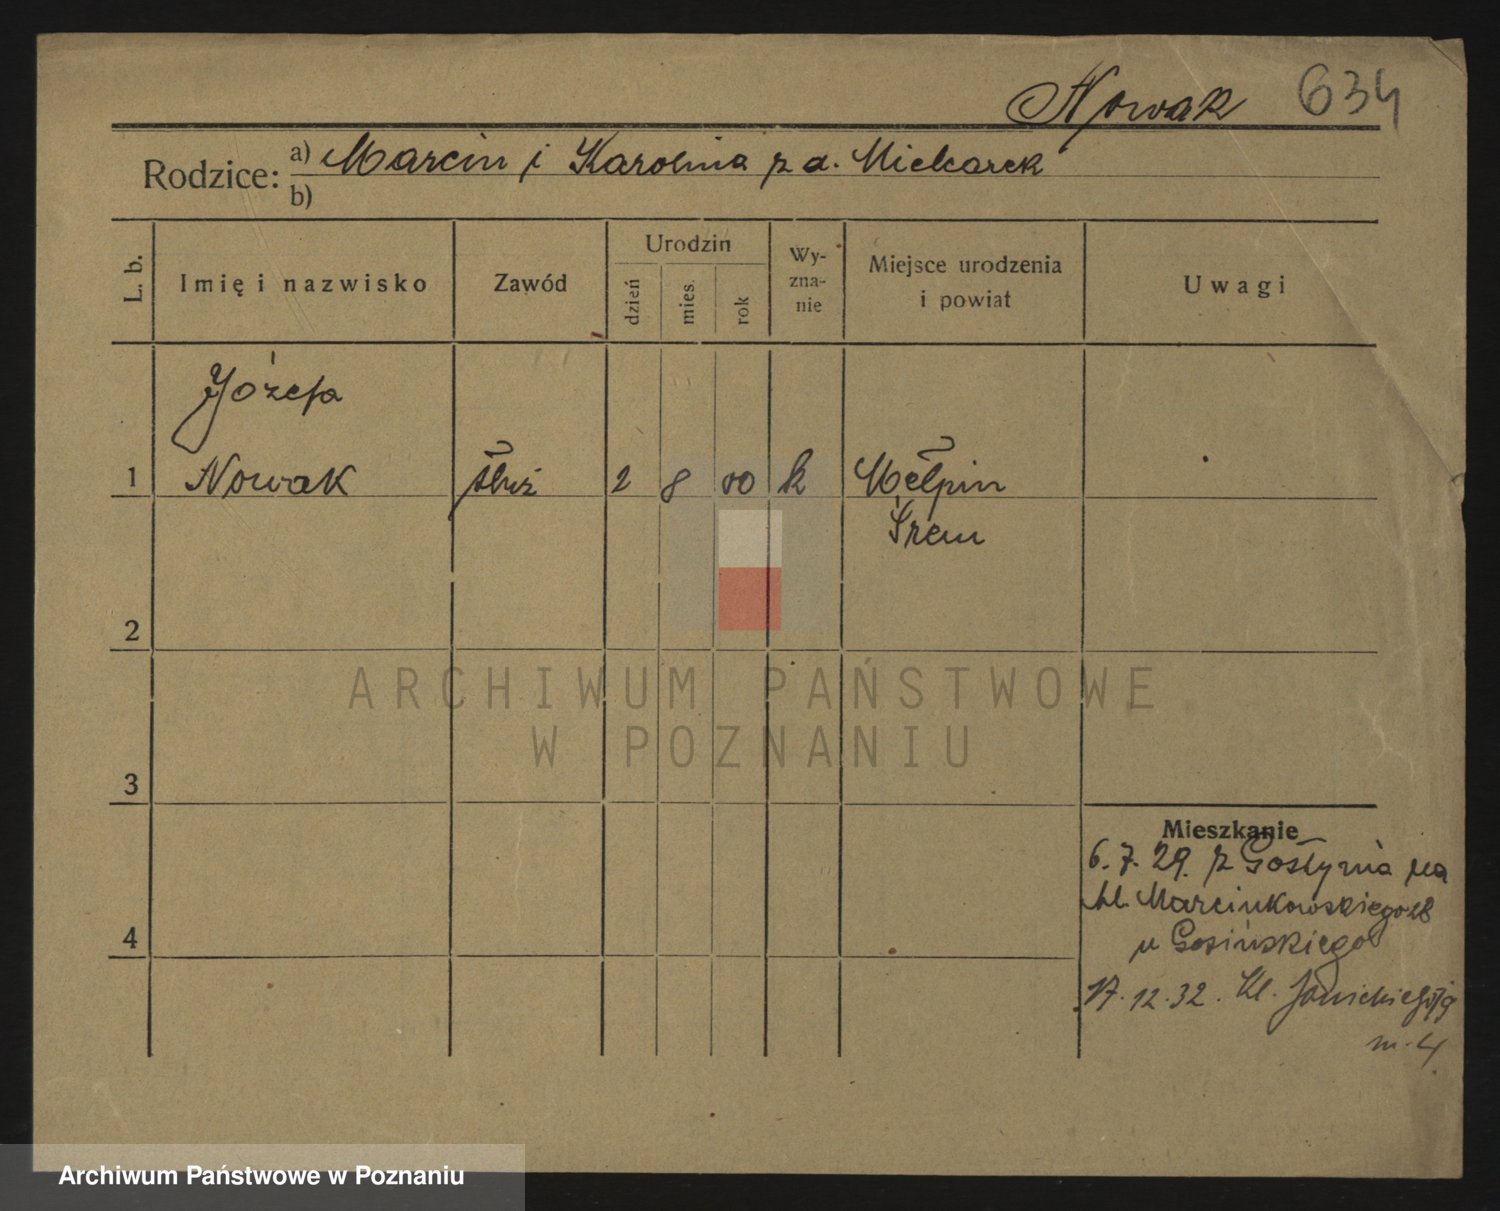 Nowak 634
Rodzice: a) Marcin i Karolina z d. Mielcarek
b)
L. b.
Imię i nazwisko
Zawód
Urodzin
dzień
mies.
rok
Wy-
zna-
nie
Miejsce urodzenia
i powiat
Uwagi
Józefa
1 Nowak służ 2 8 00 k Mełpin
Śrem
2
3
4
Mieszkanie
6.7.29. z Gostynia na
Al. Marcinkowskiego 28
u Gosińskiego
17.12.32. Kl. Janickiego
m. 4
ARCHIWUM PAŃSTWOWE
W POZNANIU
Archiwum Państwowe w Poznaniu